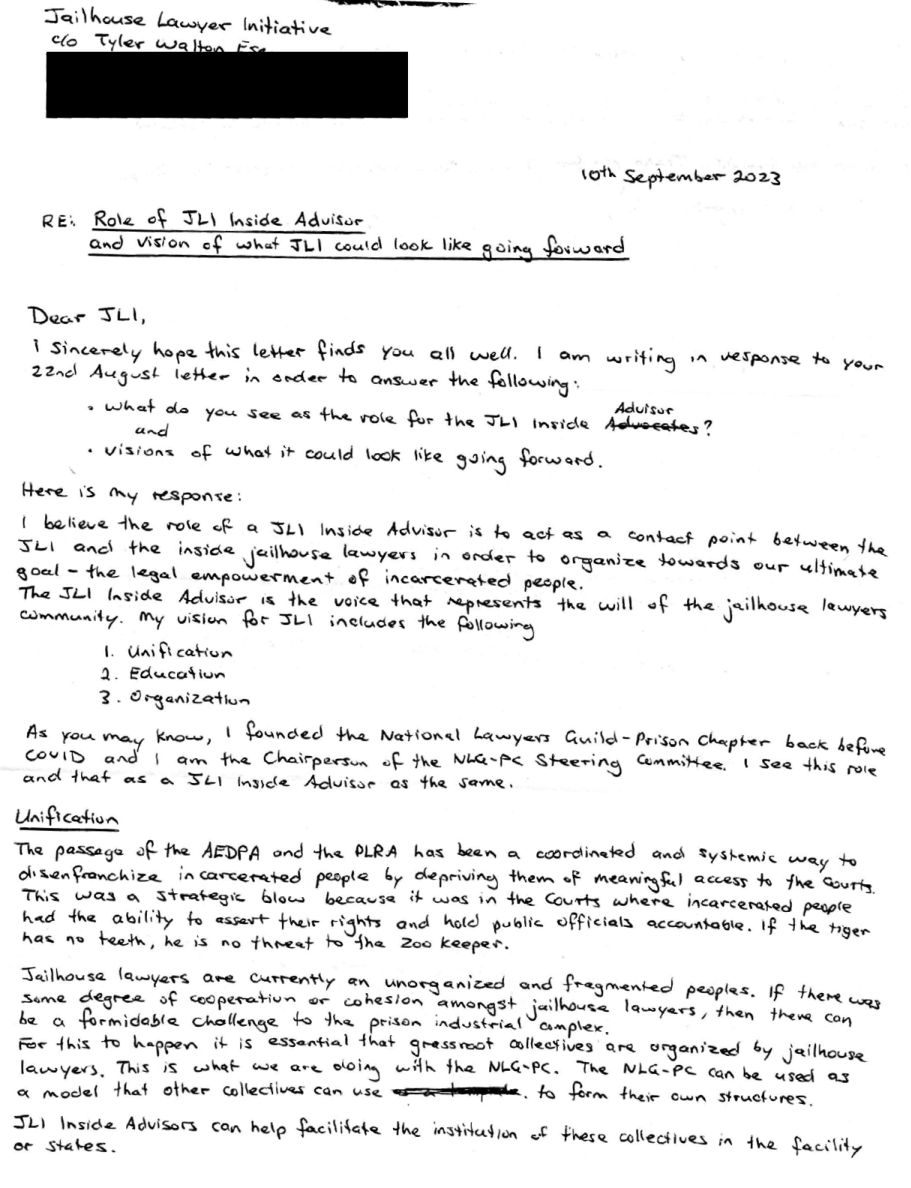 Jailhouse Lawyer Initiative
c/o Tyler Walton Esq
10th September 2023
RE: Role of JLI Inside Advisor
and vision of what JLI could look like going forward
Dear JLI,
I sincerely hope this letter finds you all well. I am writing in response to your
22nd August letter in order to answer the following:
• What do you see as the role for the JLI Inside Advocates Advisor?
and
• visions of what it could look like going forward.
Here is my response:
I believe the role of a JLI Inside Advisor is to act as a contact point between the
JLI and the inside jailhouse lawyers in order to organize towards our ultimate
goal – the legal empowerment of incarcerated people.
The JLI Inside Advisor is the voice that represents the will of the jailhouse lawyers
community. My vision for JLI includes the following
1. Unification
2. Education
3. Organization
As you may know, I founded the National Lawyers Guild-Prison Chapter back before
COVID and I am the Chairperson of the NLG-PC Steering Committee. I see this role
and that as a JLI Inside Advisor as the same.
Unification
The passage of the AEDPA and the PLRA has been a coordinated and systemic way to
disenfranchize incarcerated people by depriving them of meaningful access to the Courts.
This was a strategic blow because it was in the Courts where incarcerated people
had the ability to assert their rights and hold public officials accountable. If the tiger
has no teeth, he is no threat to the zoo keeper.
Jailhouse lawyers are currently an unorganized and fragmented peoples. If there was
some degree of cooperation or cohesion amongst jailhouse lawyers, then there can
be a formidable challenge to the prison industrial complex.
For this to happen it is essential that grassroot collectives are organized by jailhouse
lawyers. This is what we are doing with the NLG-PC. The NLG-PC can be used as
a model that other collectives can use as a template. to form their own structures.
JLI Inside Advisors can help facilitate the institution of these collectives in the facility
or states.